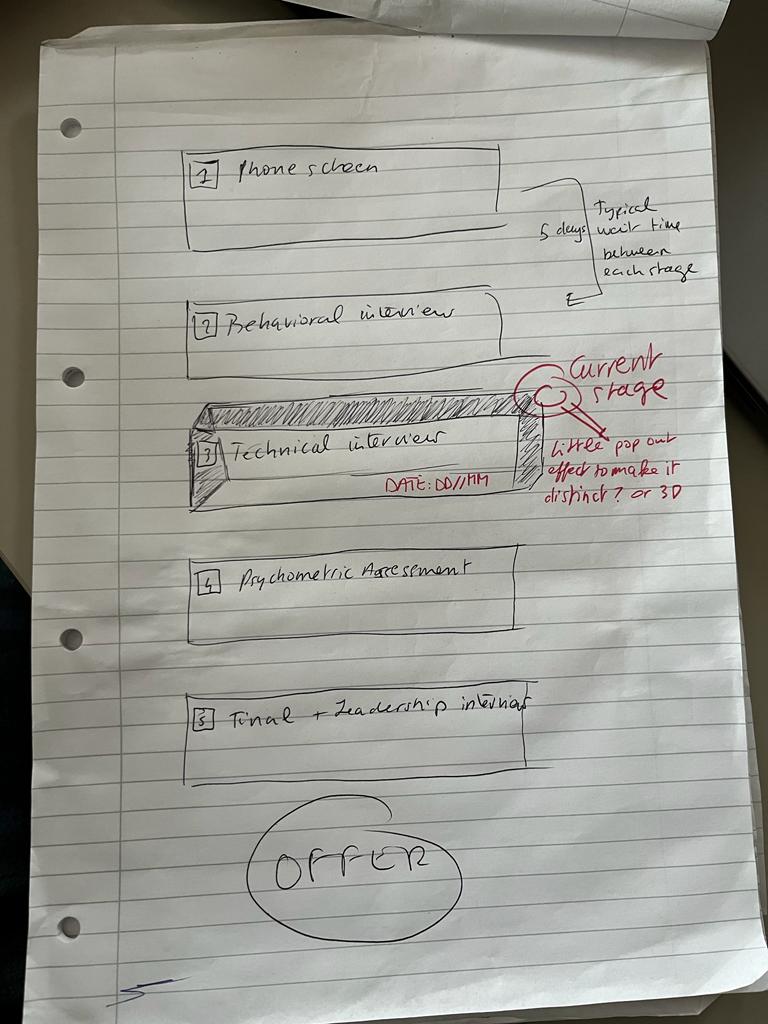 1 Phone screen
5 days
Typical
wait time
between
each stage
2 Behavioral interview
Current
stage
3 Technical interview
DATE: DD//MM
Little pop out
effect to make it
distinct? or 3D
4 Psychometric Assessment
5 Final + Leadership interview
OFFER